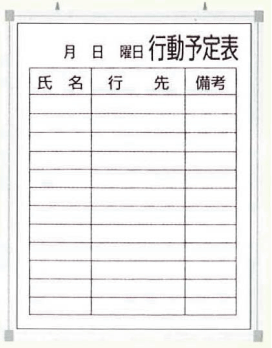 月 日 曜日 行動予定表
氏 名 行 先 備考